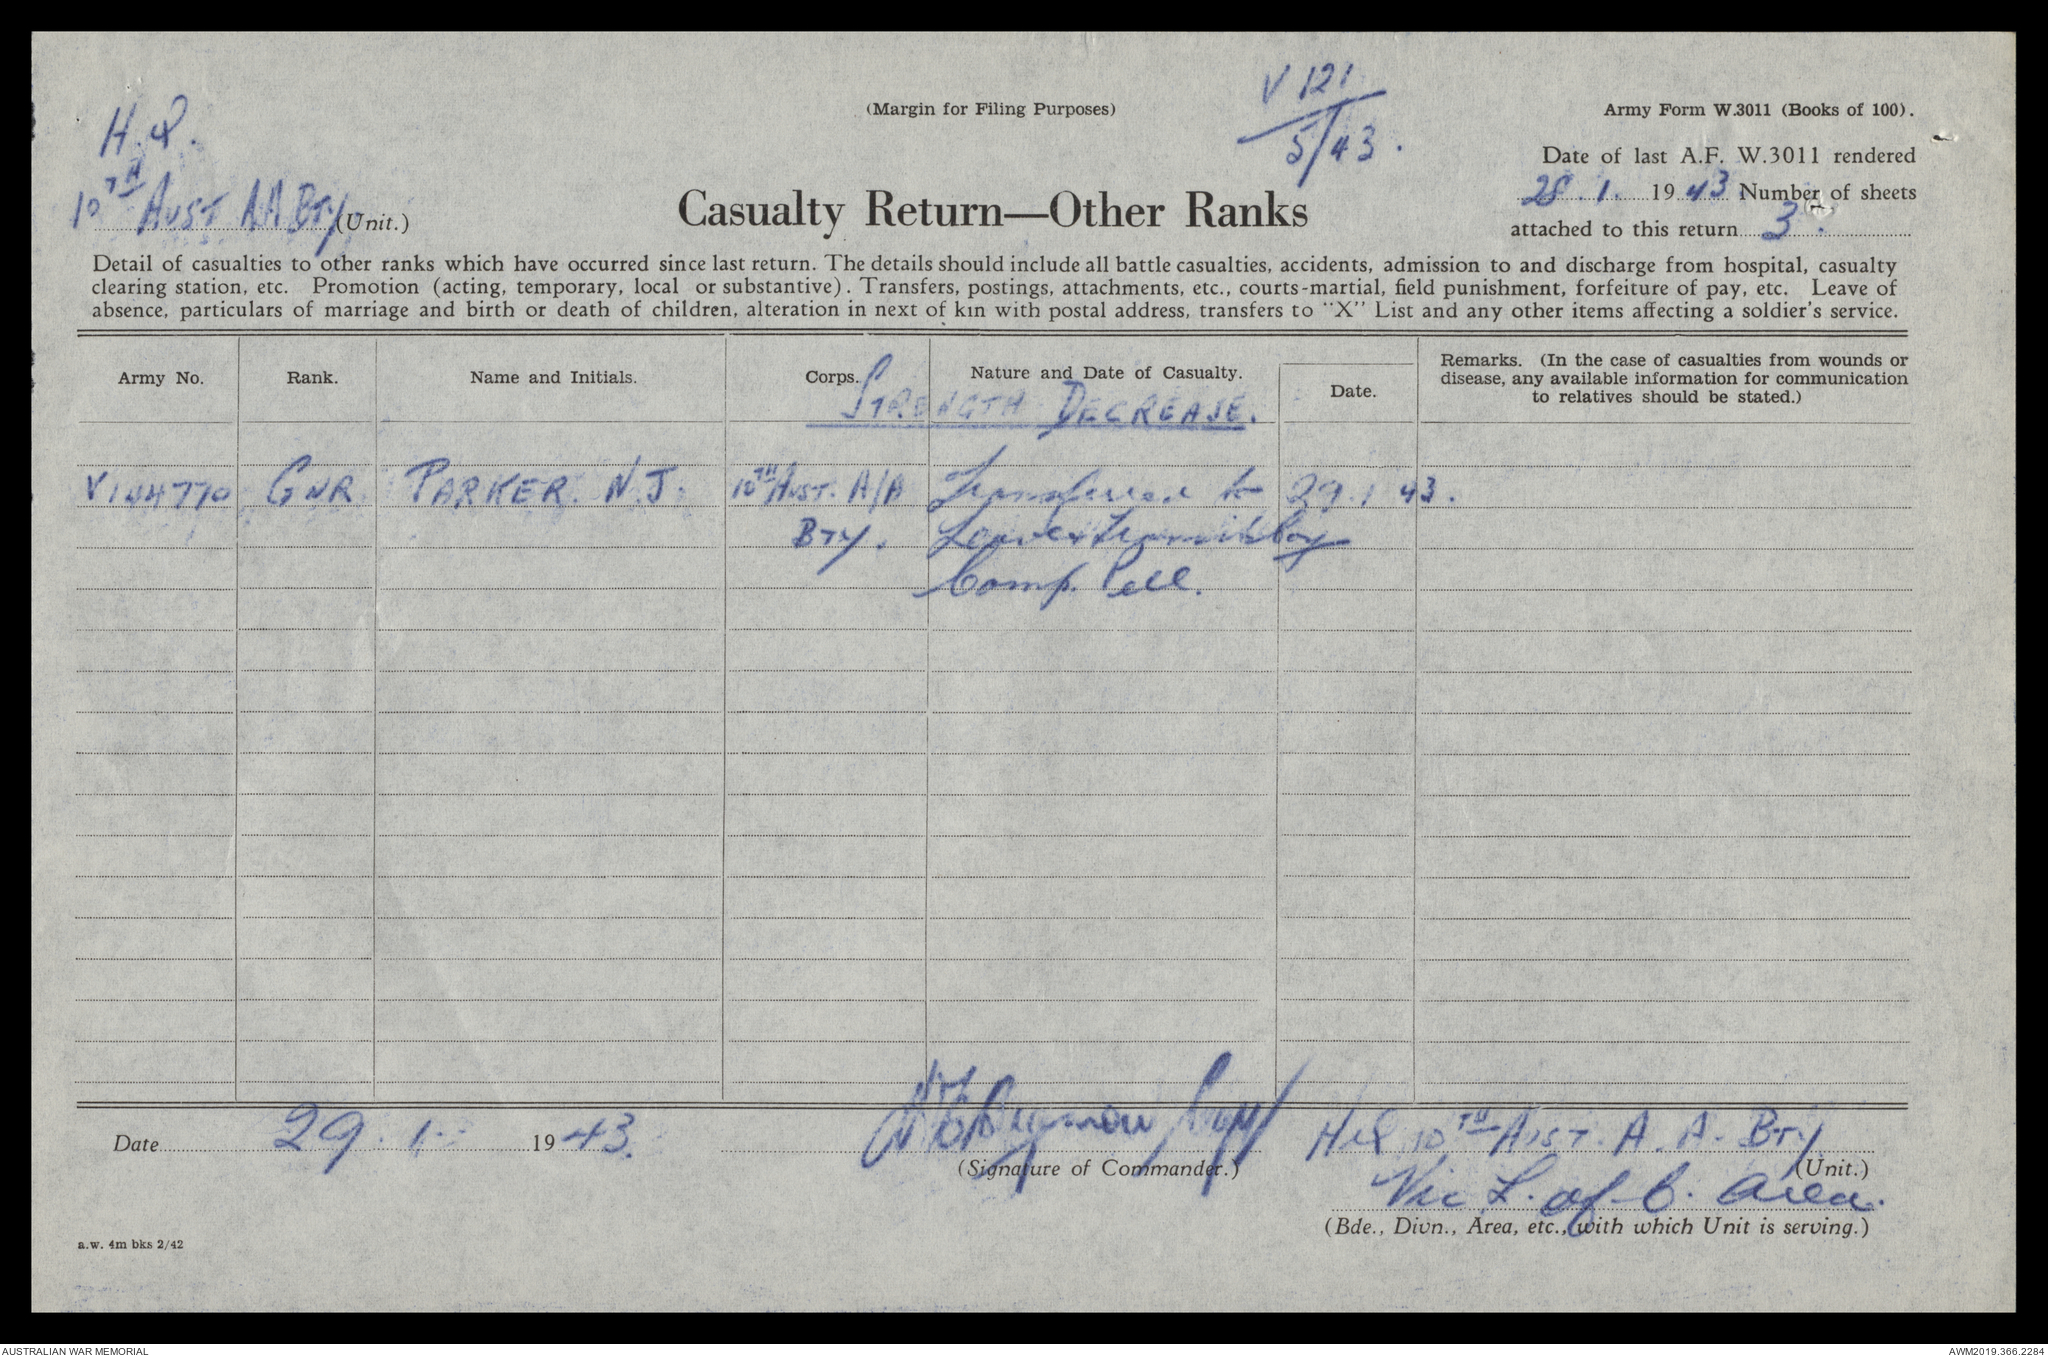 (Margin for Filing Purposes)
V 121
5/43.
Army Form W.3011 (Books of 100).
H.Q.
10TH AUST AA BTY (Unit.)
Casualty Return—Other Ranks
Date of last A.F. W.3011 rendered
28.1. 1943 Number of sheets
attached to this return 3.
Detail of casualties to other ranks which have occurred since last return. The details should include all battle casualties, accidents, admission to and discharge from hospital, casualty
clearing station, etc. Promotion (acting, temporary, local or substantive). Transfers, postings, attachments, etc., courts-martial, field punishment, forfeiture of pay, etc. Leave of
absence, particulars of marriage and birth or death of children, alteration in next of kin with postal address, transfers to "X" List and any other items affecting a soldier's service.
Army No. Rank. Name and Initials. Corps. Nature and Date of Casualty. Date. Remarks. (In the case of casualties from wounds or
disease, any available information for communication
to relatives should be stated.)
STRENGTH DECREASE.
V144770 GNR PARKER. N.J. 10TH AUST. A/A Transferred to 29.1.43.
BTY. Leave & Transit Coy
Camp Pell.
Date 29.1. 1943.
(Signature of Commander.)
HQ 10TH AUST. A.A. BTY
(Unit.)
Vic L. of C. Area.
(Bde., Divn., Area, etc., with which Unit is serving.)
a.w. 4m bks 2/42
AUSTRALIAN WAR MEMORIAL
AWM2019.366.2284